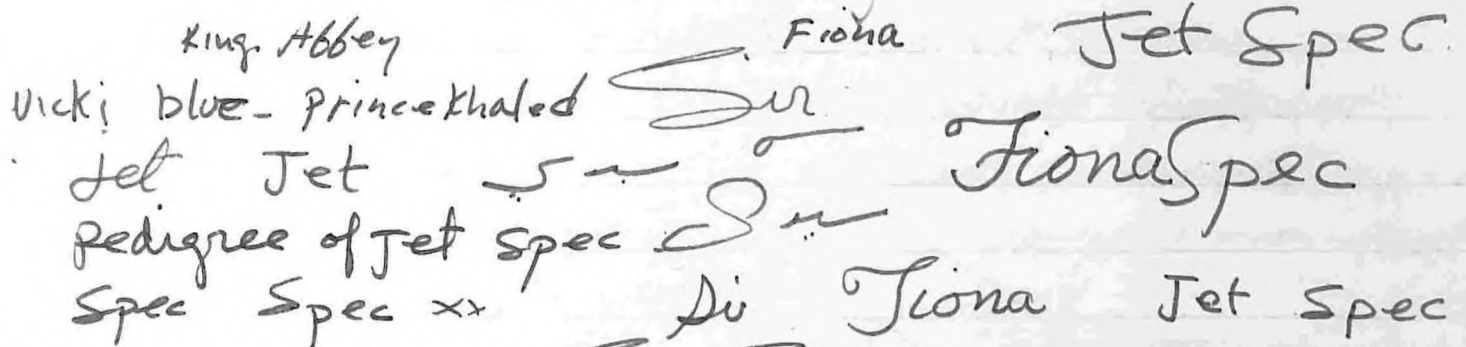 King Abbey Fiona Jet Spec.
Vicki blue - Prince Khaled Sir
Jet Jet Fiona Spec
pedigree of Jet Spec
Spec Spec xx Sir Fiona Jet Spec